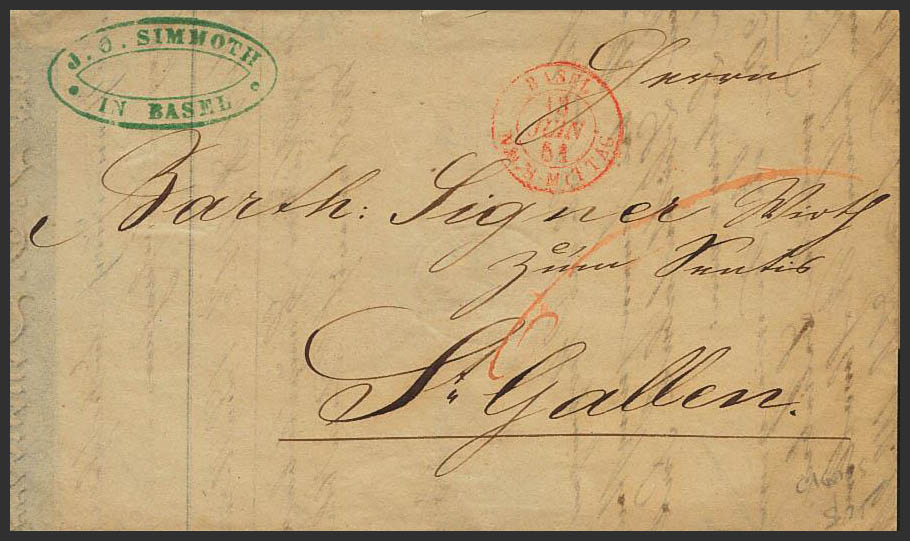 J. O. SIMMOTH
IN BASEL
BASEL
18
JUIN
51
NACHMITTAG
Herrn
Barth: Signer Wirth
zum Sentis
St. Gallen.